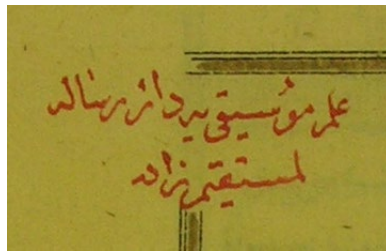 علم موسيقى يه دائر رساله
لمستقيم زاده